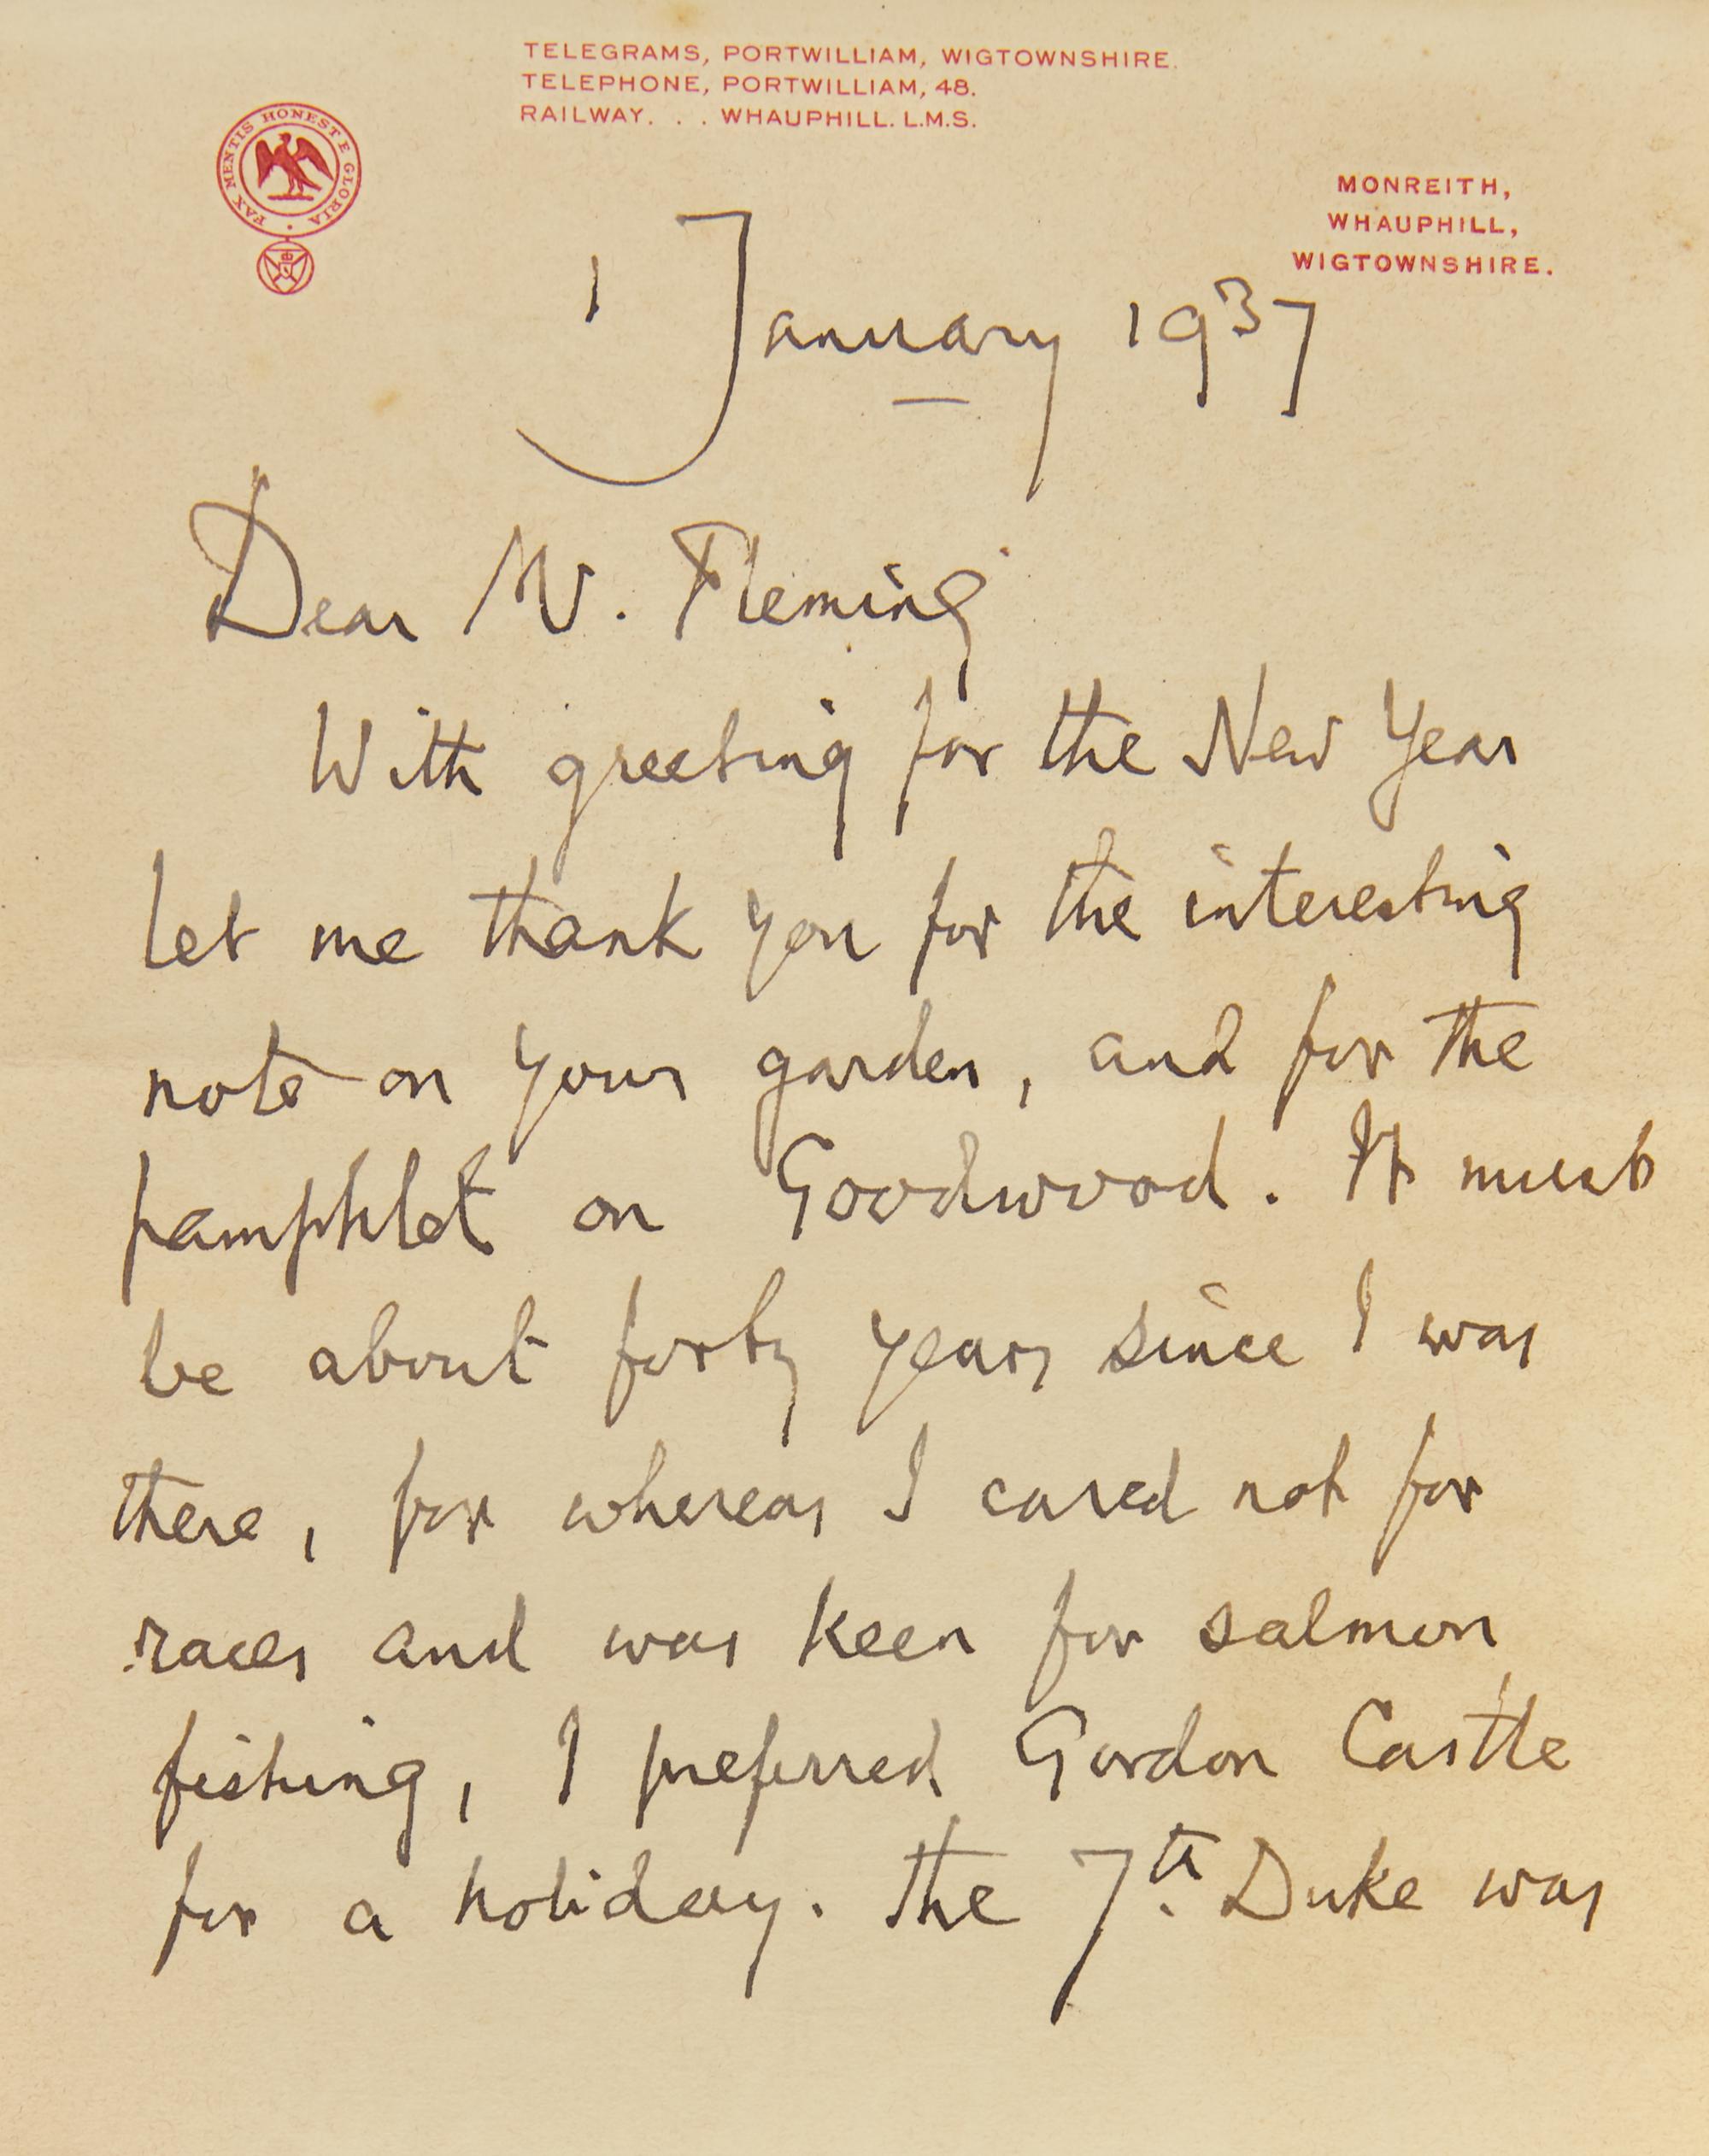 TELEGRAMS, PORTWILLIAM, WIGTOWNSHIRE.
TELEPHONE, PORTWILLIAM, 48.
RAILWAY. . . WHAUPHILL. L.M.S.
PAX MENTIS HONESTE GLORIA
MONREITH,
WHAUPHILL,
WIGTOWNSHIRE.
1 January 1937
Dear Mr. Fleming
With greeting for the New Year
let me thank you for the interesting
note on your garden, and for the
pamphlet on Goodwood. It must
be about forty years since I was
there, for whereas I cared not for
races and was keen for salmon
fishing, I preferred Gordon Castle
for a holiday. The 7th. Duke was